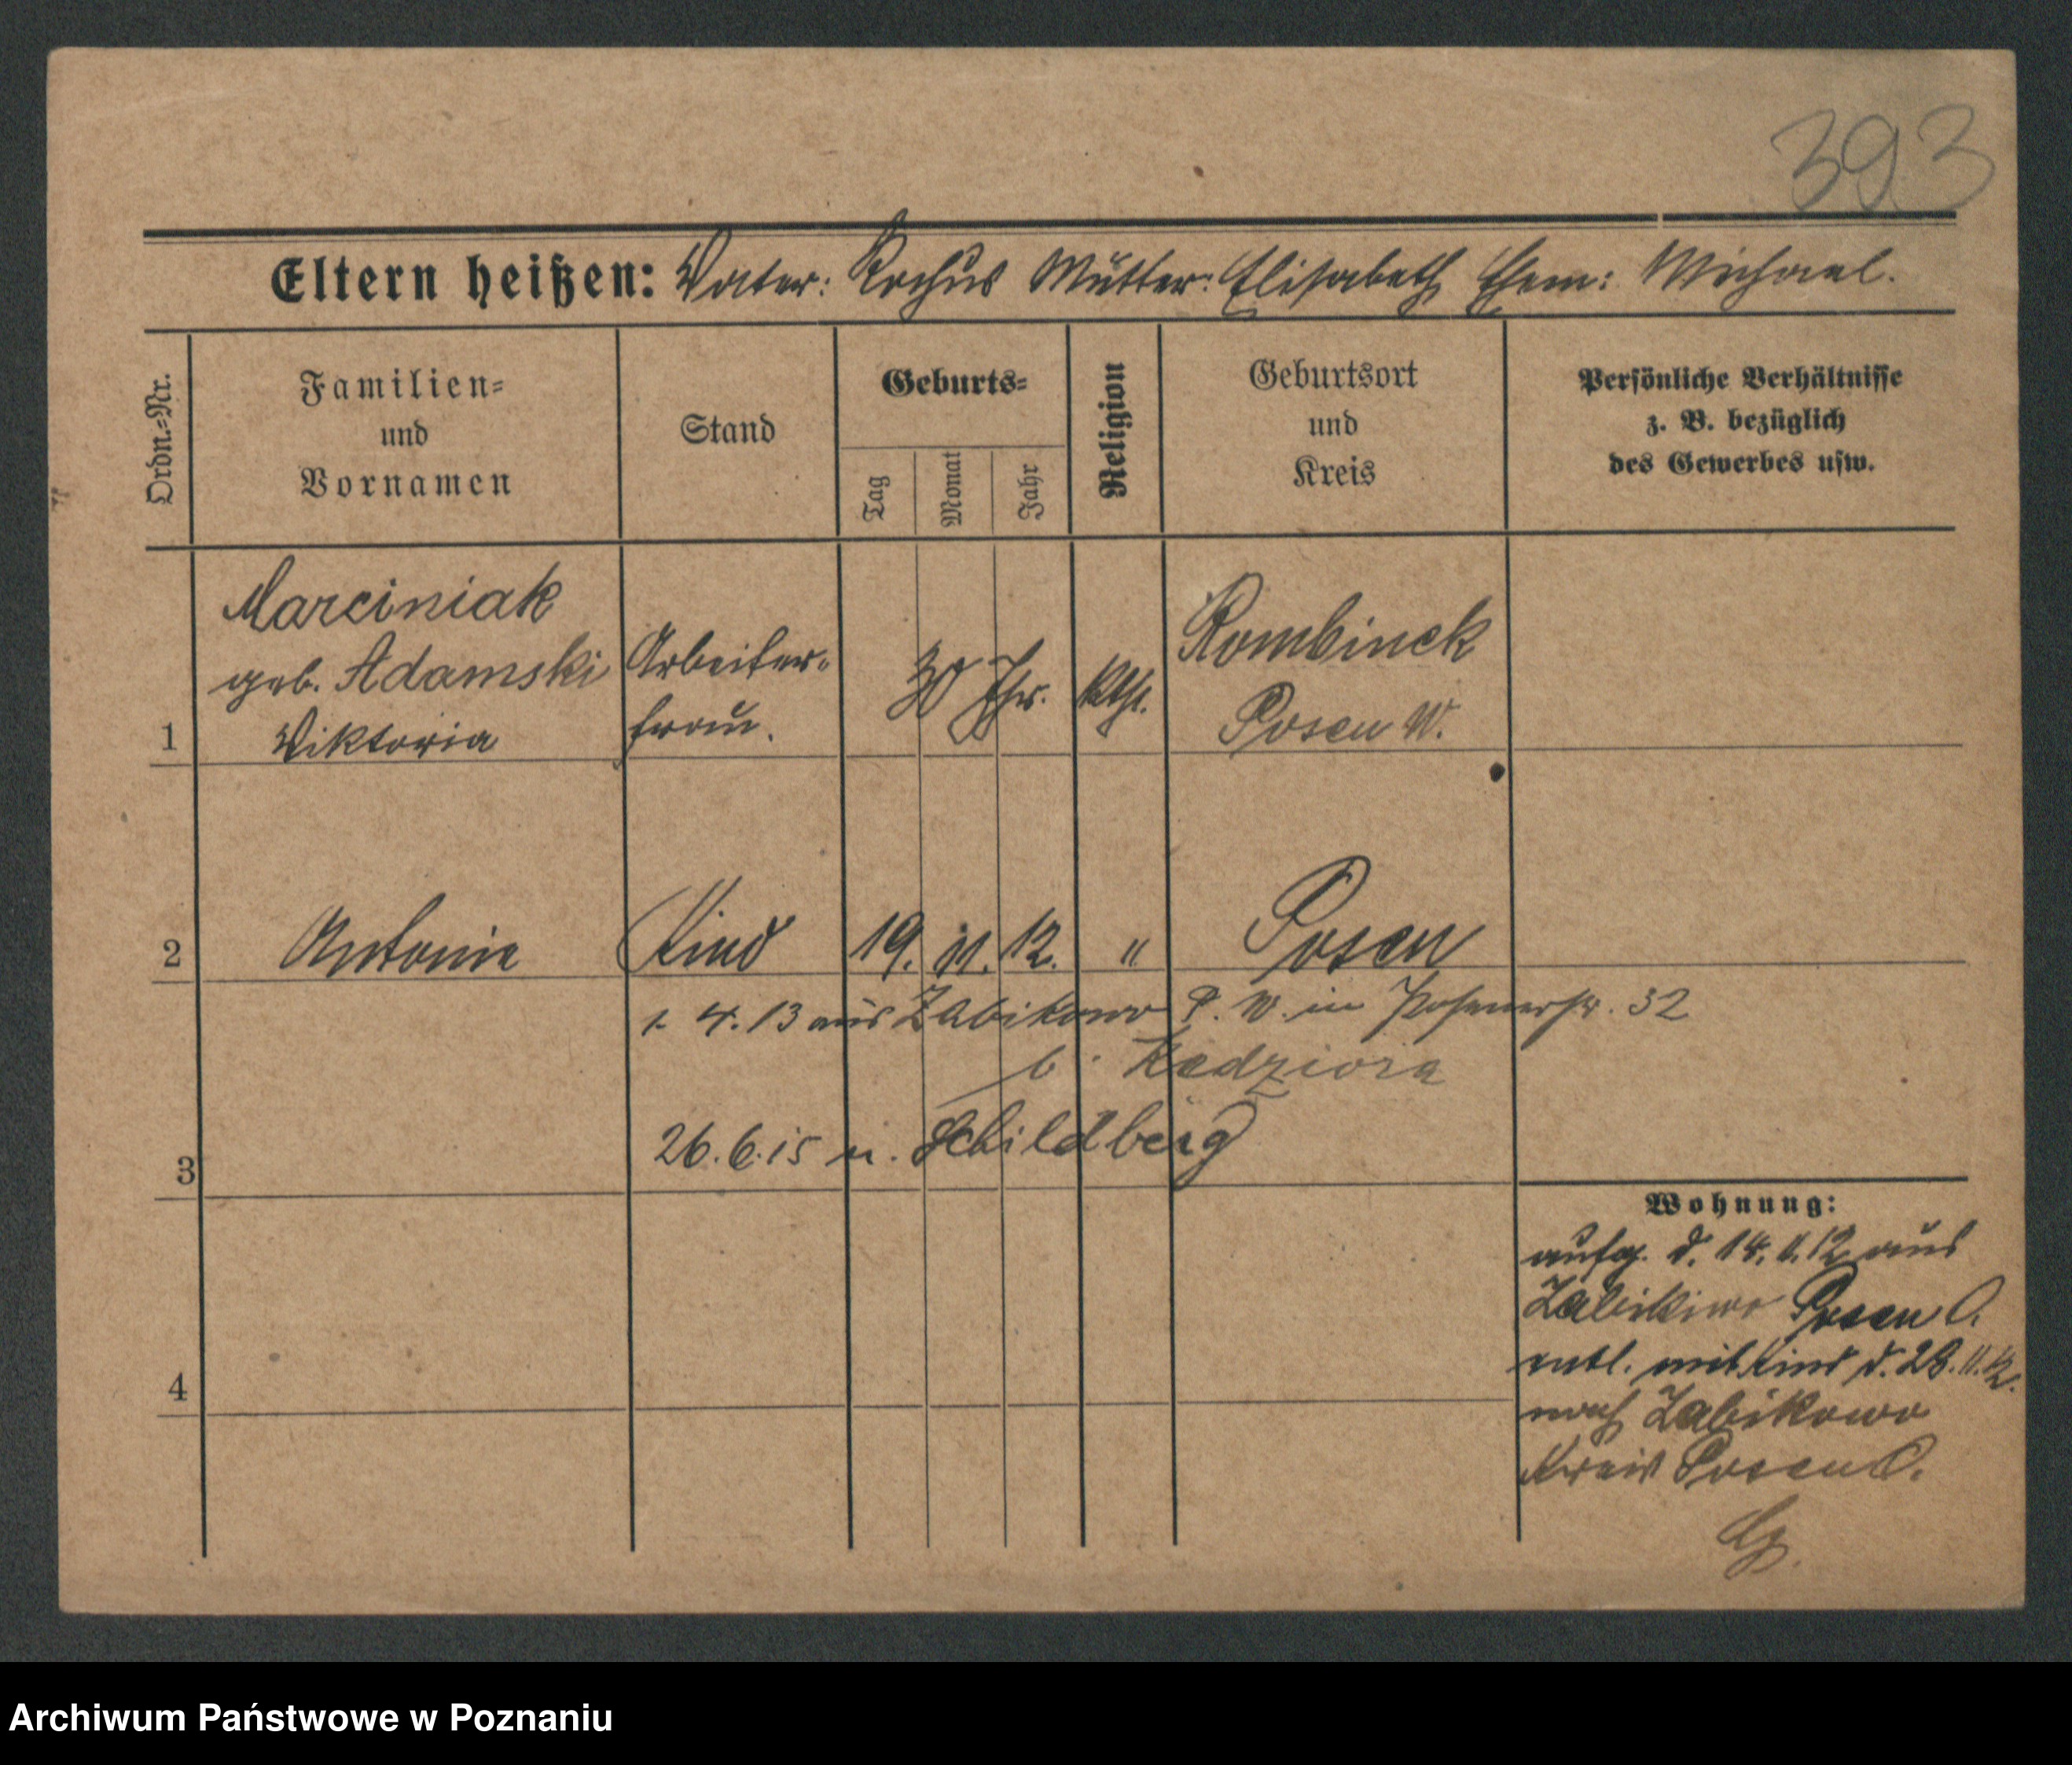 393
Eltern heißen: Vater: Rochus Mutter: Elisabeth Ehem: Michael.
Ordn.=Nr.
Familien=
und
Vornamen
Stand
Geburts=
Tag
Monat
Jahr
Religion
Geburtsort
und
Kreis
Persönliche Verhältnisse
z. B. bezüglich
des Gewerbes usw.
1
Marciniak
geb. Adamski
Viktoria
Arbeiter=
frau.
30 Jhr.
kth.
Rombinek
Posen W.
2
Antonie
Kind
19. 11. 12.
"
Posen
1. 4. 13 aus Zabikowo P. W. in Posenerstr. 32
b. Kedziora
3
26. 6. 15 n. Schildberg
4
Wohnung:
aufg. d. 14. 11. 12 aus
Zabikowo Posen O.
entl. mit Kind d. 28. 11. 12.
nach Zabikowo
Kreis Posen O.
Archiwum Państwowe w Poznaniu